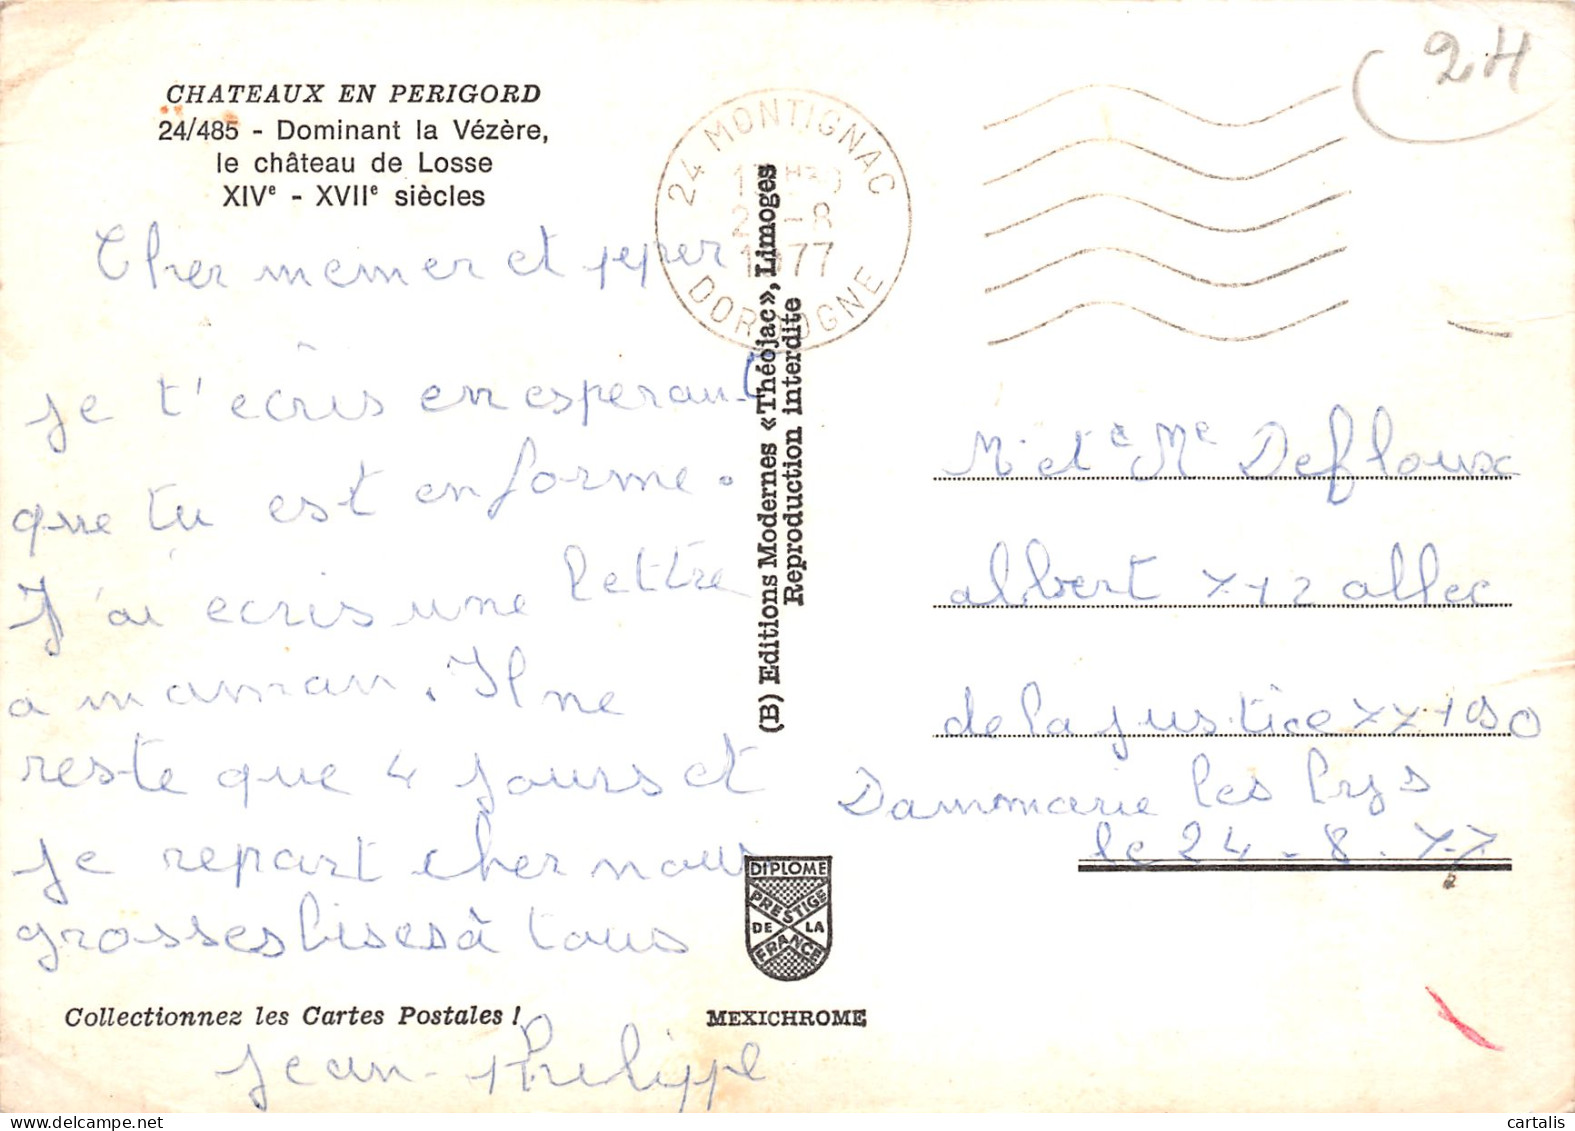 CHATEAUX EN PERIGORD
24/485 - Dominant la Vézère,
le château de Losse
XIVe - XVIIe siècles
Cher memer et peper
je t'écris en esperant
que tu est en forme.
J'ai écris une lettre
a maman. Il ne
reste que 4 jours et
je repart cher nous
grosses bises à tous
Jean-Philippe
Collectionnez les Cartes Postales !
24 MONTIGNAC
-8
1977
DORDOGNE
(B) Editions Modernes «Théojac», Limoges
Reproduction interdite
DIPLOME
PRESTIGE
DE LA
FRANCE
MEXICHROME
24
M et Me Defloux
albert 772 allee
de la justice 77190
Dammarie les lys
le 24-8-77
cartalis